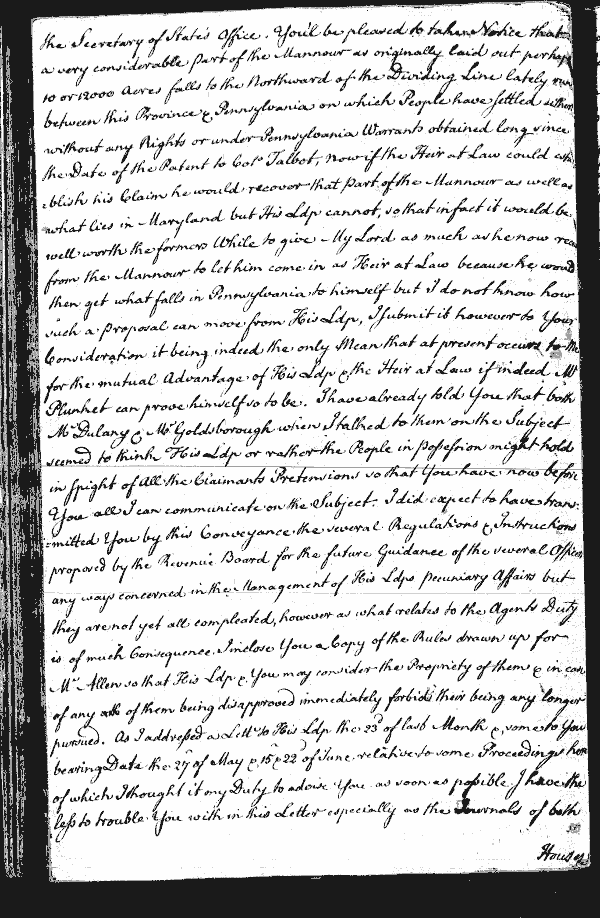 the Secretary of State's Office. You'll be pleased to take Notice that
a very considerable Part of the Mannour as originally laid out perhaps
10 or 12000 Acres falls to the Northward of the Dividing Line lately run
between this Province & Pennsylvania on which People have settled either
without any Rights or under Pennsylvania Warrants obtained long since
the Date of the Patent to Colo. Talbot, now if the Heir at Law could esta
blish his Claim he would recover that part of the Mannour as well as
what lies in Maryland but His Ldp cannot, so that in fact it would be
well worth the formers While to give My Lord as much as he now
from the Mannour to let him come in as Heir at Law because he would
then get what falls in Pennsylvania to himself but I do not know how
such a Proposal can move from His Ldp, I submit it however to Your
Consideration it being indeed the only Mean that at present occurs to Me
for the mutual Advantage of His Ldp & the Heir at Law if indeed Mr
Plunket can prove himself so to be. I have already told You that both
Mr Dulany & Mr Goldsborough when I talked to them on the Subject
seemed to think His Ldp or rather the People in possession might hold
in spight of all the Claimants Pretensions so that You have now before
You all I can communicate on the Subject. I did expect to have trans-
mitted You by this Conveyance the several Regulations & Instructions
proposed by the Revenue Board for the future Guidance of the several Officers
any ways concerned in the Management of His Ldps pecuniary Affairs but
they are not yet all compleated, however as what relates to the Agents Duty
is of much Consequence I inclose You a Copy of the Rules drawn up for
Mr Allen so that His Ldp & You may consider the Propriety of them & in case
of any of them being disapproved immediately forbid their being any longer
pursued. As I addressed a Lettr to His Ldp the 23d of last Month & some to You
bearing Date the 27th of May & 15th & 22d of June relative to some Proceedings here
of which I thought it my Duty to advise You as soon as possible I have the
less to trouble You with in this Letter especially as the Journals of both
Houses